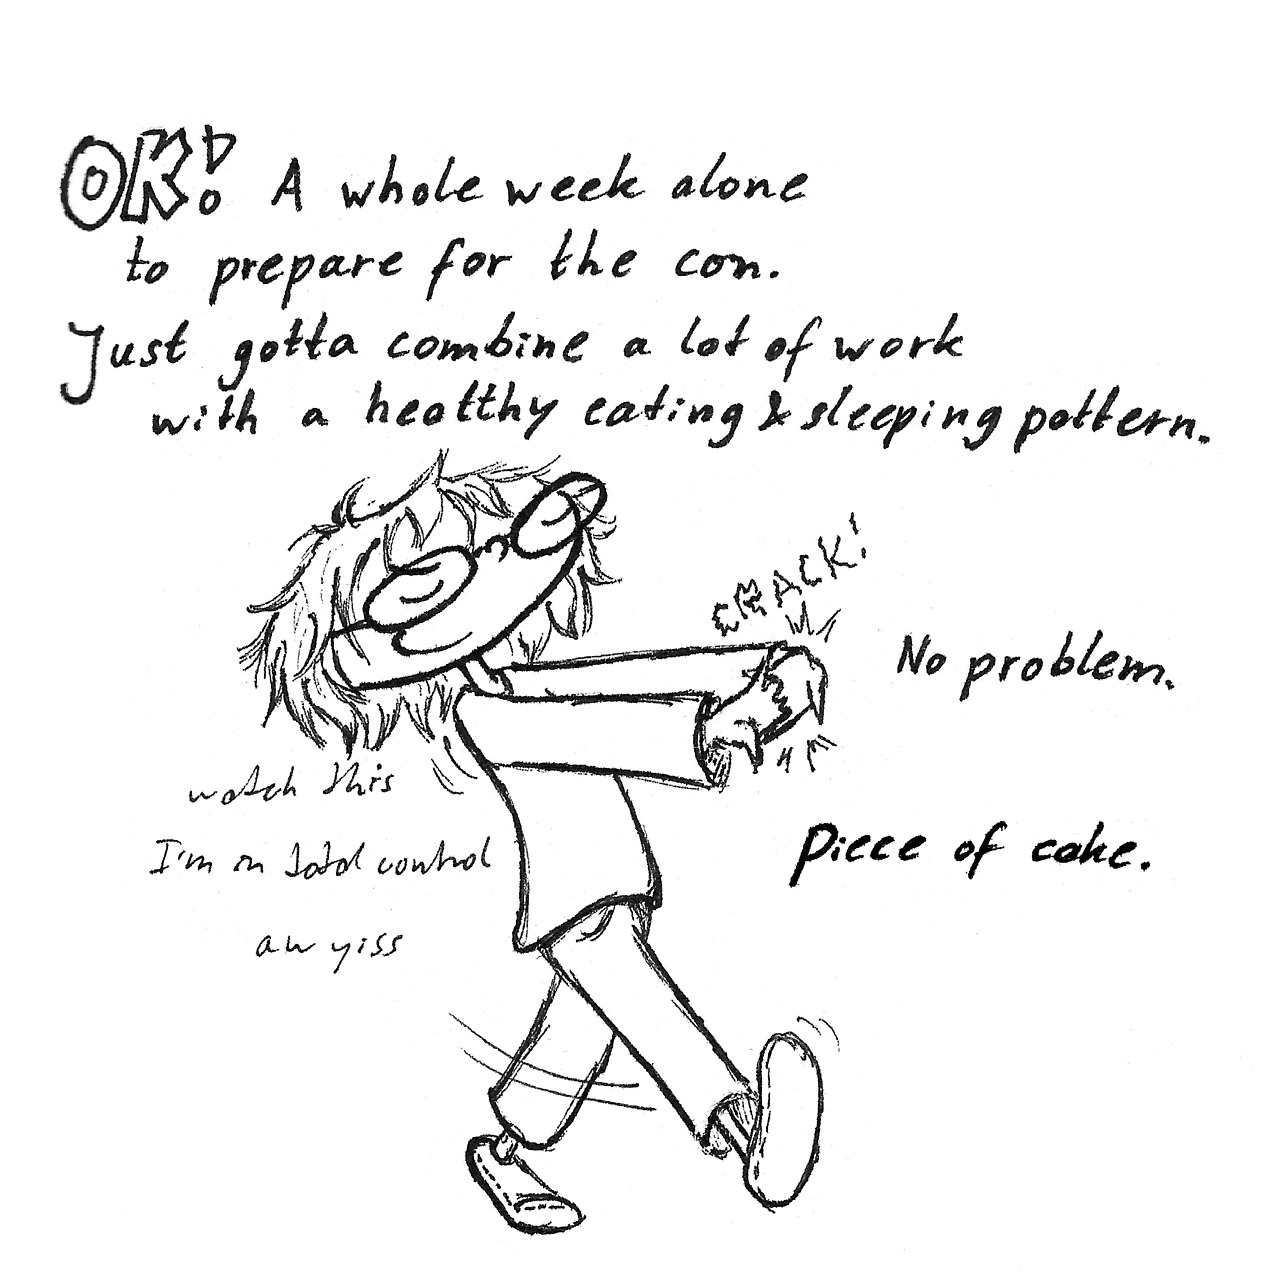 OK! A whole week alone
to prepare for the con.
Just gotta combine a lot of work
with a healthy eating & sleeping pattern.
CRACK!
No problem.
watch this
I'm in total control
Piece of cake.
aw yiss